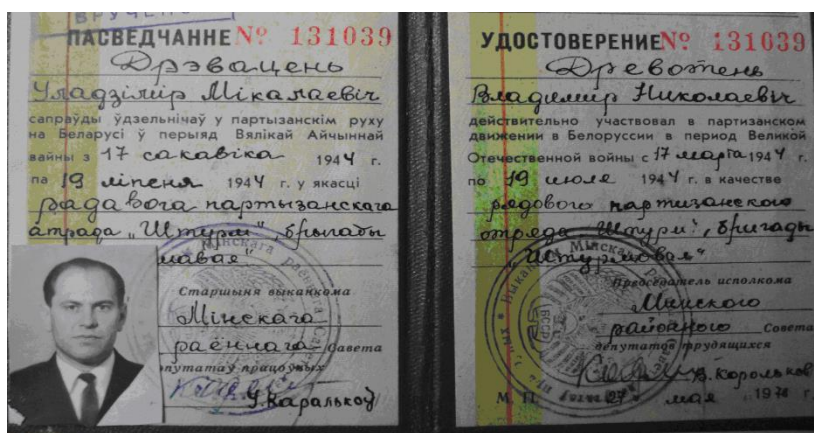 ВРУЧЕНО
ПАСВЕДЧАННЕ № 131039
Дрэвацень
Уладзімір Мікалаевіч
сапраўды ўдзельнічаў у партызанскім руху
на Беларусі ў перыяд Вялікай Айчыннай
вайны з 17 сакавіка 1944 г.
па 19 ліпеня 1944 г. у якасці
радавога партызанскага
атрада „Штурм", брыгады
мавая"
Старшыня выканкома
Мінскага
раённага Савета
дэпутатаў працоўных
У. Каралькоў
УДОСТОВЕРЕНИЕ № 131039
Древотень
Владимир Николаевич
действительно участвовал в партизанском
движении в Белоруссии в период Великой
Отечественной войны с 17 марта 1944 г.
по 19 июля 1944 г. в качестве
рядового партизанского
отряда „Штурм", бригады
„Штурмовая"
Председатель исполкома
Минского
районного Совета
депутатов трудящихся
В. Корольков
М. П. 27 мая 197 г.